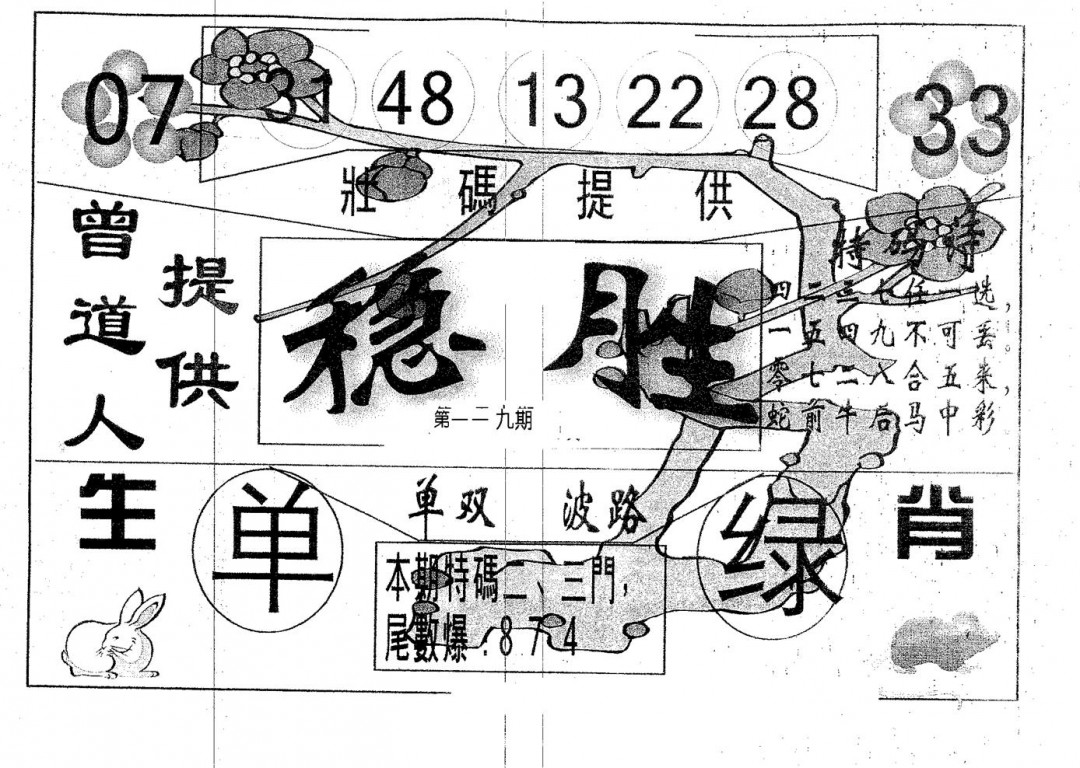 07 31 48 13 22 28 33
壯碼提供
曾道人
提供
穩胜
第一二九期
特码诗
四二三七任一选，
一五四九不可丢。
零七二八合五来，
蛇前牛后马中彩
生肖
单
单双 波路
绿
本期特碼二、三門，
尾數爆：874